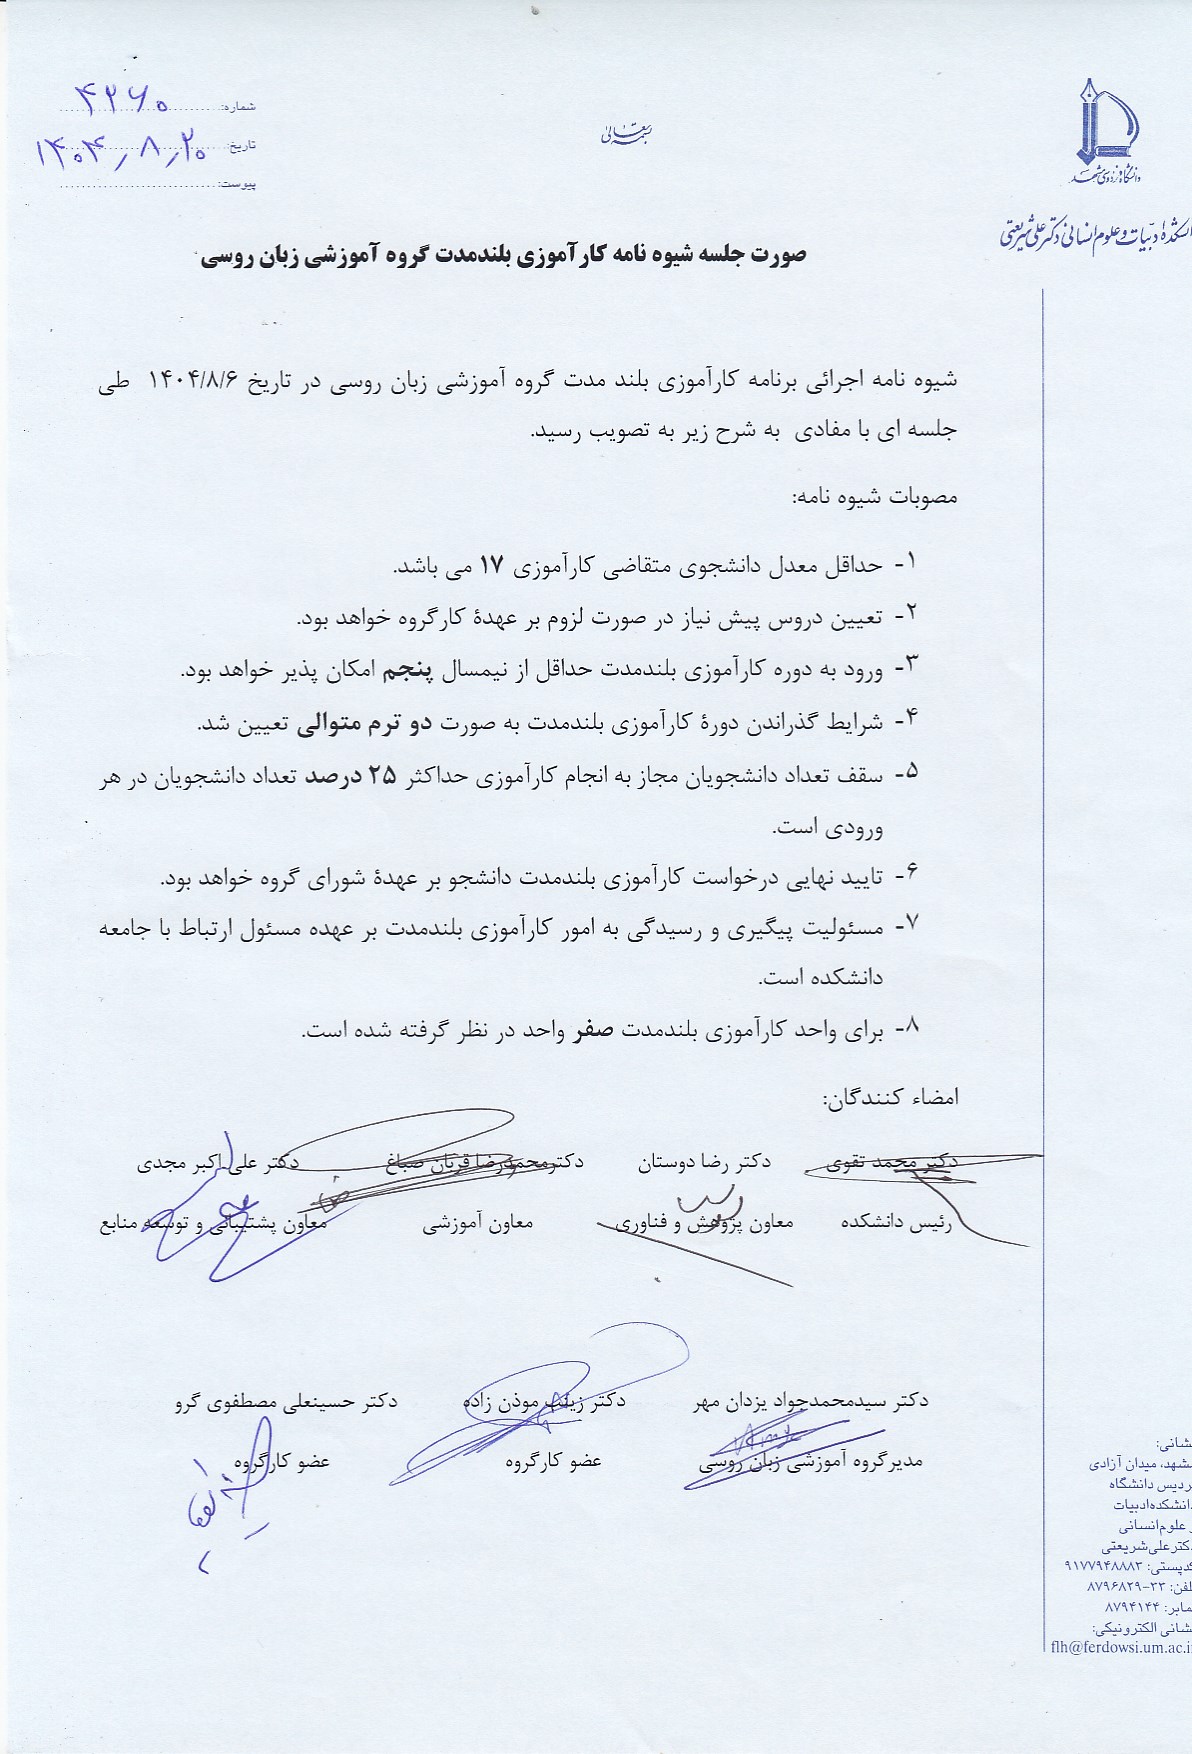 شماره: ۴۲۶۰
تاریخ: ۱۴۰۴/۸/۲۰
پیوست:
بسمه تعالی
دانشگاه فردوسی مشهد
دانشکدهٔ ادبیات و علوم انسانی دکتر علی شریعتی
صورت جلسه شیوه نامه کارآموزی بلندمدت گروه آموزشی زبان روسی
شیوه نامه اجرائی برنامه کارآموزی بلند مدت گروه آموزشی زبان روسی در تاریخ ۱۴۰۴/۸/۶ طی
جلسه ای با مفادی به شرح زیر به تصویب رسید.
مصوبات شیوه نامه:
۱- حداقل معدل دانشجوی متقاضی کارآموزی ۱۷ می باشد.
۲- تعیین دروس پیش نیاز در صورت لزوم بر عهدهٔ کارگروه خواهد بود.
۳- ورود به دوره کارآموزی بلندمدت حداقل از نیمسال پنجم امکان پذیر خواهد بود.
۴- شرایط گذراندن دورهٔ کارآموزی بلندمدت به صورت دو ترم متوالی تعیین شد.
۵- سقف تعداد دانشجویان مجاز به انجام کارآموزی حداکثر ۲۵ درصد تعداد دانشجویان در هر
ورودی است.
۶- تایید نهایی درخواست کارآموزی بلندمدت دانشجو بر عهدهٔ شورای گروه خواهد بود.
۷- مسئولیت پیگیری و رسیدگی به امور کارآموزی بلندمدت بر عهده مسئول ارتباط با جامعه
دانشکده است.
۸- برای واحد کارآموزی بلندمدت صفر واحد در نظر گرفته شده است.
امضاء کنندگان:
دکتر محمد تقوی دکتر رضا دوستان دکترمحمدرضا قربان صباغ دکتر علی اکبر مجدی
رئیس دانشکده معاون پژوهش و فناوری معاون آموزشی معاون پشتیبانی و توسعه منابع
دکتر سیدمحمدجواد یزدان مهر دکتر زینب موذن زاده دکتر حسینعلی مصطفوی گرو
مدیرگروه آموزشی زبان روسی عضو کارگروه عضو کارگروه
نشانی:
مشهد، میدان آزادی
پردیس دانشگاه
دانشکده‌ادبیات
و علوم‌انسانی
دکترعلی‌شریعتی
کدپستی: ۹۱۷۷۹۴۸۸۸۳
تلفن: ۳۳-۸۷۹۶۸۲۹
نمابر: ۸۷۹۴۱۴۴
نشانی الکترونیکی:
flh@ferdowsi.um.ac.ir